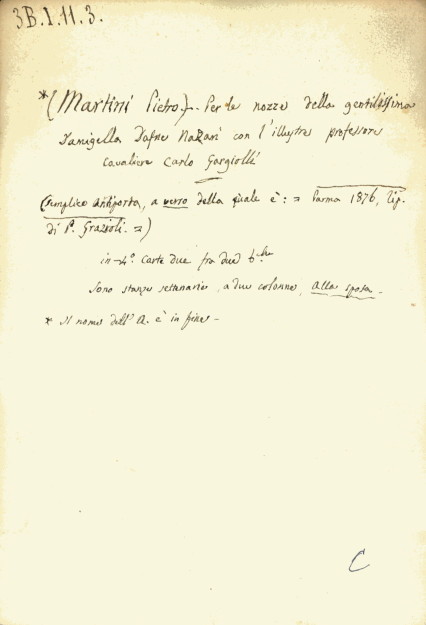 3B.I.11.3.
*(Martini Pietro). Per le nozze della gentilissima
Damigella Dafne Nazari con l'illustre professore
cavaliere Carlo Gargiolli
(semplice antiporta, a verso della quale è: = Parma 1876, tip.
di P. Grazioli. =)
in-4º. carte due fra due
Sono stanze settenarie, a due colonne, alla sposa.
* Il nome dell'A. è in fine.
C